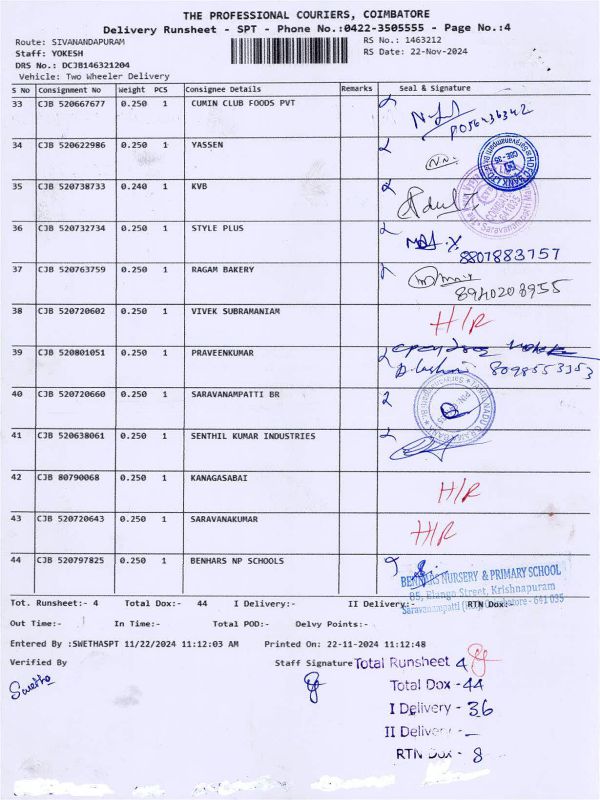 THE PROFESSIONAL COURIERS, COIMBATORE
Delivery Runsheet - SPT - Phone No.:0422-3505555 - Page No.:4
Route: SIVANANDAPURAM RS No.: 1463212
Staff: YOKESH RS Date: 22-Nov-2024
DRS No.: DCJB146321204
Vehicle: Two Wheeler Delivery
S No Consignment No Weight PCS Consignee Details Remarks Seal & Signature
33 CJB 520667677 0.250 1 CUMIN CLUB FOODS PVT
34 CJB 520622986 0.250 1 YASSEN
35 CJB 520738733 0.240 1 KVB
36 CJB 520732734 0.250 1 STYLE PLUS 8807883757
37 CJB 520763759 0.250 1 RAGAM BAKERY 8940208955
38 CJB 520720602 0.250 1 VIVEK SUBRAMANIAM H/R
39 CJB 520801051 0.250 1 PRAVEENKUMAR 8098553353
40 CJB 520720660 0.250 1 SARAVANAMPATTI BR
41 CJB 520638061 0.250 1 SENTHIL KUMAR INDUSTRIES
42 CJB 80790068 0.250 1 KANAGASABAI H/R
43 CJB 520720643 0.250 1 SARAVANAKUMAR H/R
44 CJB 520797825 0.250 1 BENHARS NP SCHOOLS
BENHARS NURSERY & PRIMARY SCHOOL
85, Elango Street, Krishnapuram
Saravanampatti Coimbatore - 641 035
Tot. Runsheet:- 4 Total Dox:- 44 I Delivery:- II Delivery:- RTN Dox:-
Out Time:- In Time:- Total POD:- Delvy Points:-
Entered By :SWETHASPT 11/22/2024 11:12:03 AM Printed On: 22-11-2024 11:12:48
Verified By Staff Signature
Swetha
Total Runsheet 4
Total Dox - 44
I Delivery - 36
II Delivery - -
RTN Dox - 8